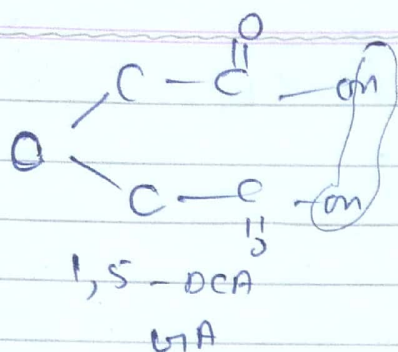 O
C - C - OH
O
C - C - OH
O
1, 5 - DCA